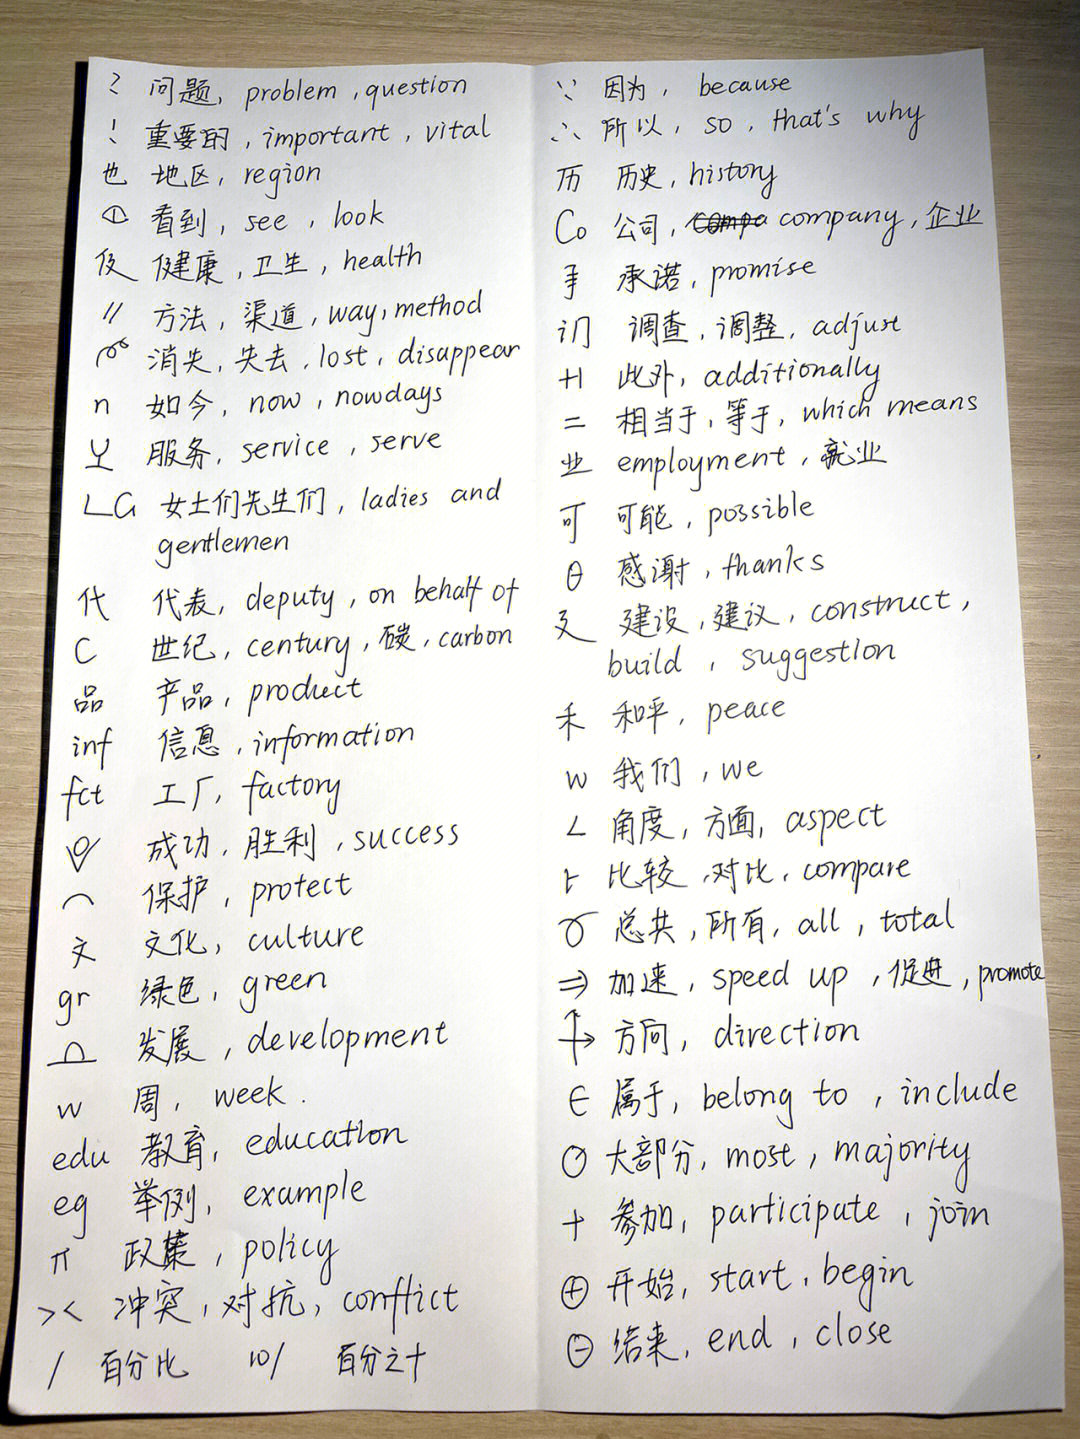 ? 问题, problem, question
! 重要的, important, vital
也 地区, region
看到, see, look
健康, 卫生, health
〃 方法, 渠道, way, method
消失, 失去, lost, disappear
n 如今, now, nowdays
服务, service, serve
LG 女士们先生们, ladies and
gentlemen
代 代表, deputy, on behalf of
C 世纪, century, 碳, carbon
品 产品, product
inf 信息, information
fct 工厂, factory
成功, 胜利, success
⌒ 保护, protect
文 文化, culture
gr 绿色, green
发展, development
w 周, week.
edu 教育, education
eg 举例, example
π 政策, policy
>< 冲突, 对抗, conflict
/ 百分比 10/ 百分之十
∵ 因为, because
∴ 所以, so, that's why
历 历史, history
Co 公司, company, 企业
承诺, promise
调查, 调整, adjust
+| 此外, additionally
= 相当于, 等于, which means
业 employment, 就业
可 可能, possible
θ 感谢, thanks
廴 建设, 建议, construct,
build, suggestion
禾 和平, peace
w 我们, we
∠ 角度, 方面, aspect
比较, 对比, compare
总共, 所有, all, total
⇒ 加速, speed up, 促进, promote
方向, direction
∈ 属于, belong to, include
大部分, most, majority
+ 参加, participate, join
⊕ 开始, start, begin
⊖ 结束, end, close